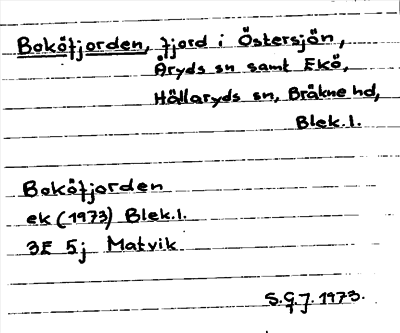 Boköfjorden, fjord i Östersjön,
Åryds sn samt Ekö,
Hällaryds sn, Bräkne hd,
Blek.l.
Boköfjorden
ek (1973) Blek.l.
3E 5j Matvik
S.G.J. 1973.